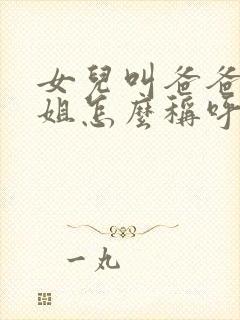 女兒叫爸爸
姐怎麼稱呼
一丸